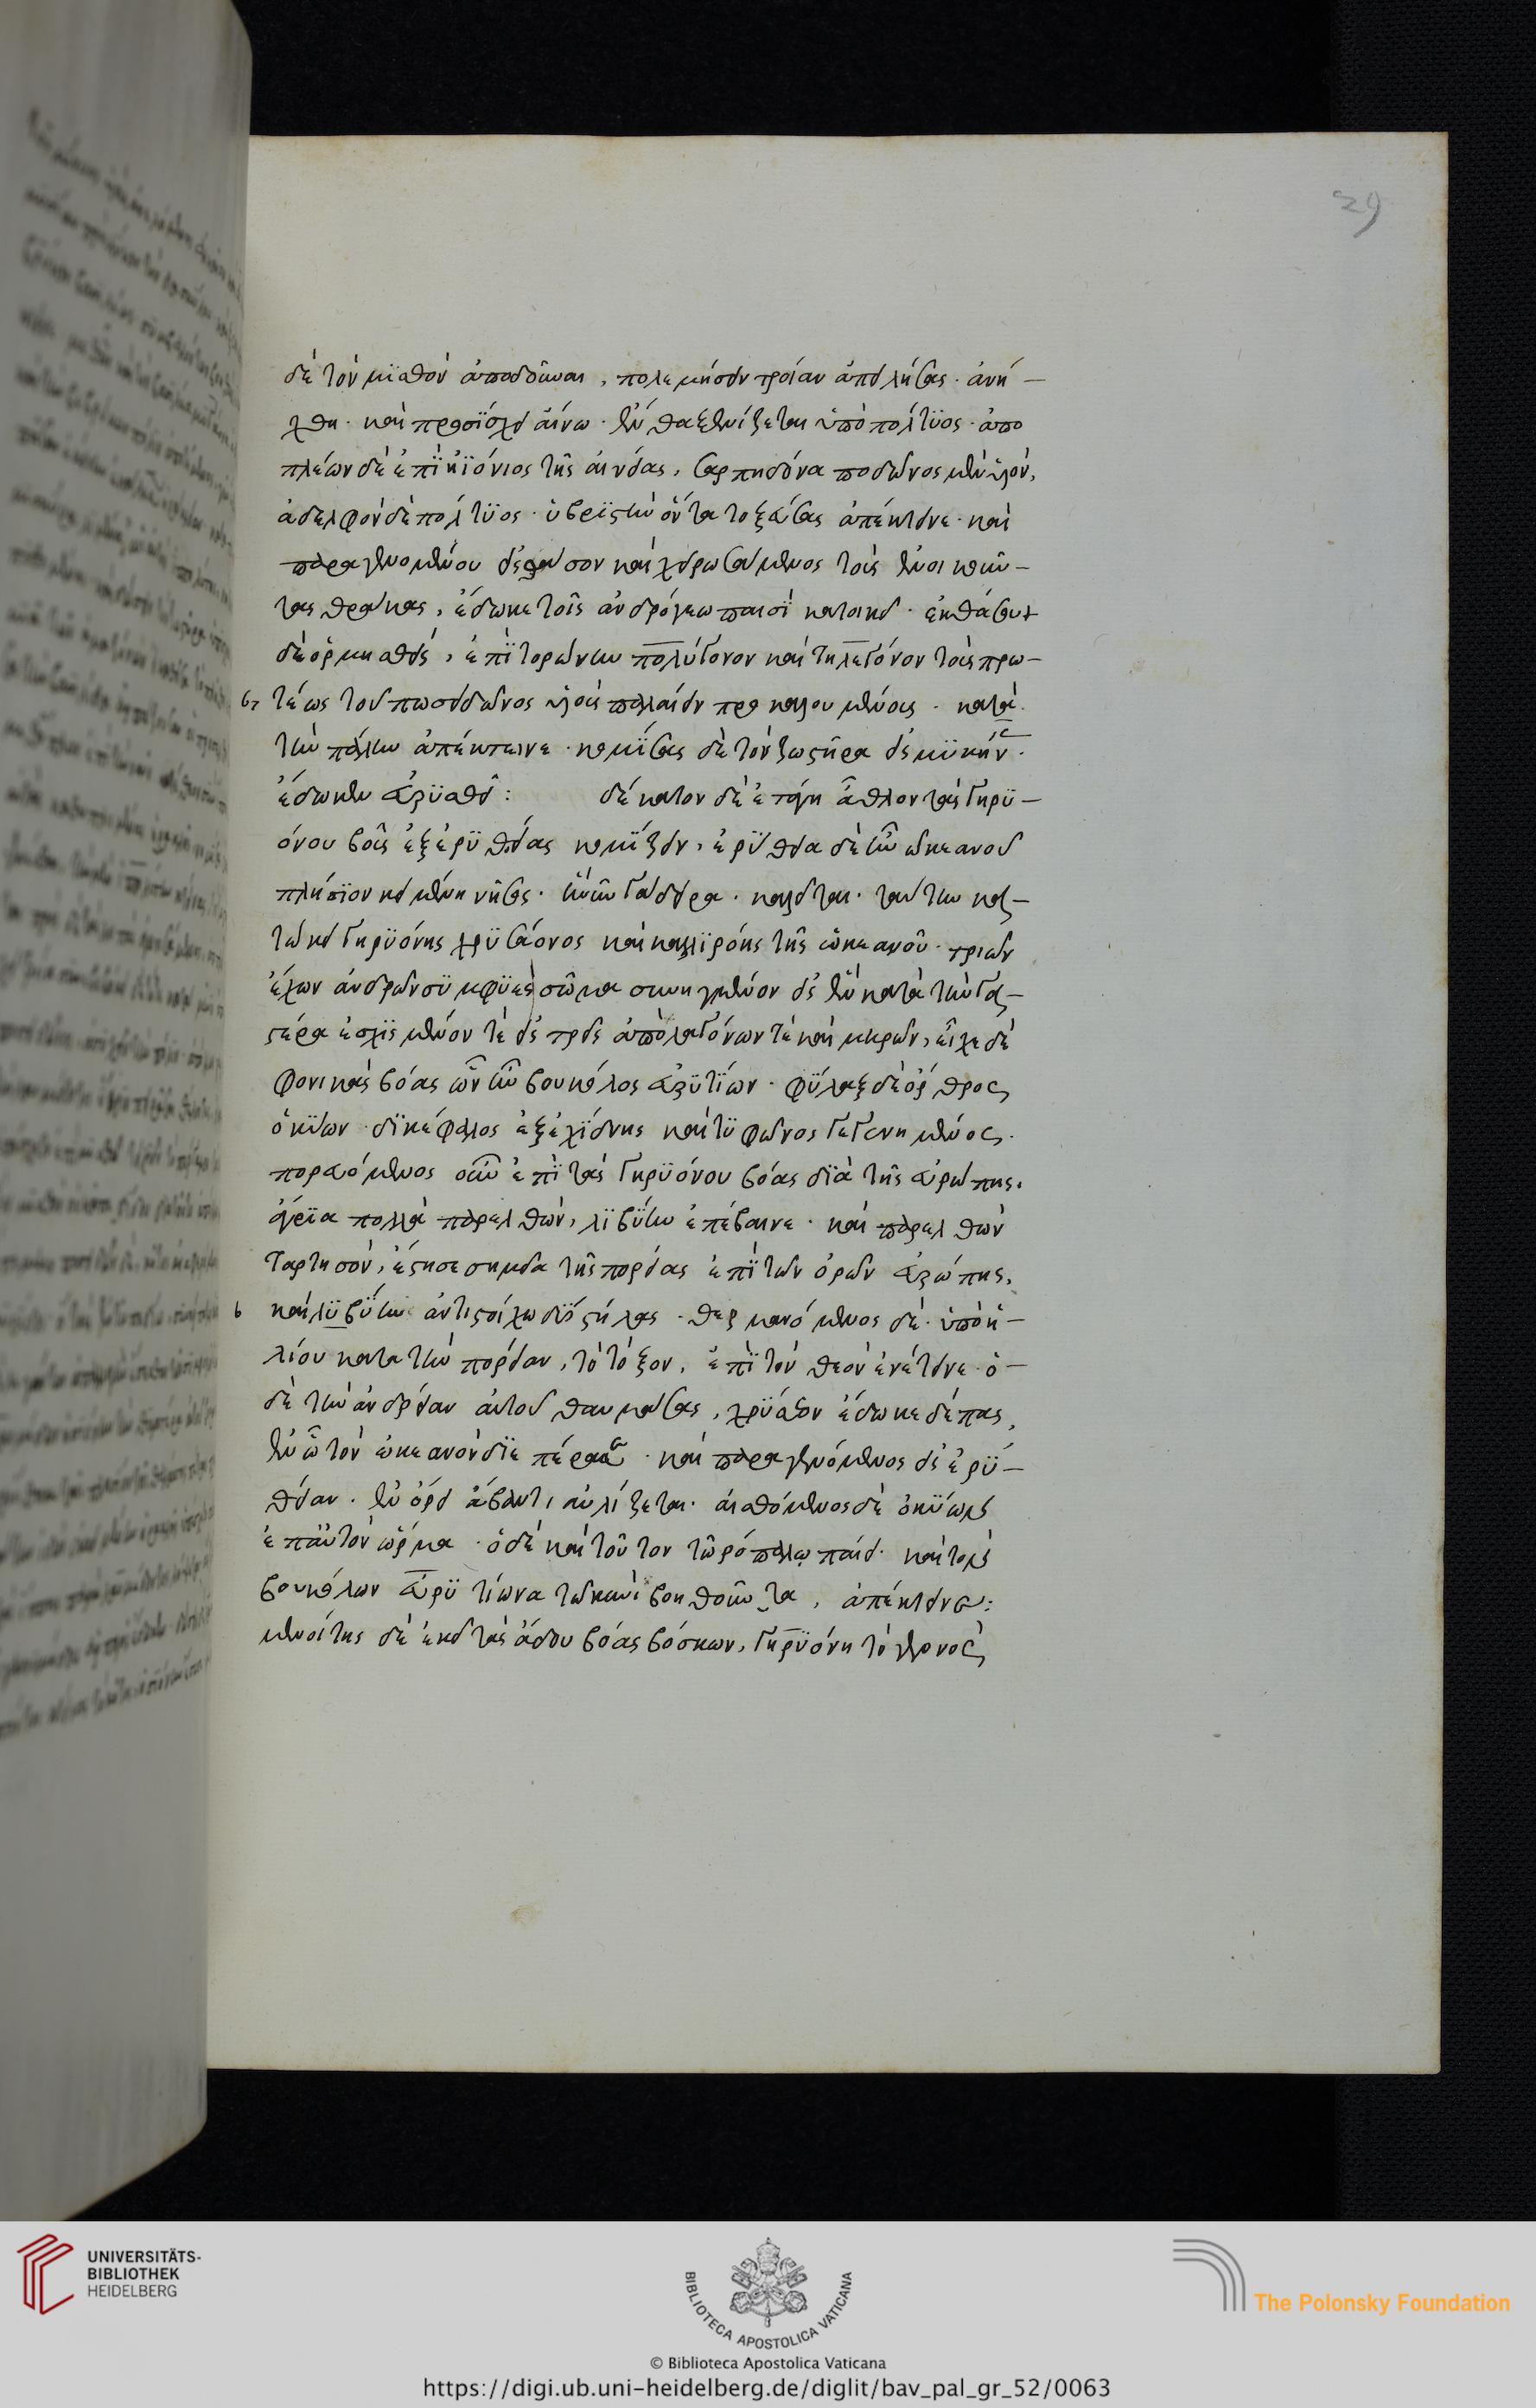 29
δὲ τὸν μισθὸν ἀποδοῦναι, πολεμήσειν τροίαν ἀπειλήσας. ἀνή-
χθη. καὶ προσΐσχει αἴνω. ἔνθα ξενίζεται ὑπὸ πόλτυος. ἀπο
πλέων δὲ ἐπὶ ἠϊόνιος τῆς αἰνείας, σαρπηδόνα ποσειδῶνος μὲν υἱὸν,
ἀδελφὸν δὲ πόλτυος. ὑβριστὴν ὄντα τοξεύσας ἀπέκτεινε. καὶ
παραγενομένου εἰς θάσον καὶ χειρωσάμενος τοὺς ἐνοικοῦν-
τας θράκας, ἔδωκε τοῖς ἀνδρόγεω παισὶ κατοικεῖ. ἐκ θάσου
δὲ ὁρμηθεὶς, ἐπὶ τορώνην πολύγονον καὶ τηλέγονον τοὺς πρω-
τέως τοῦ ποσειδῶνος υἱοὺς παλαίειν προκαλουμένους. κατὰ
τὴν πάλην ἀπέκτεινε. κομίσας δὲ τὸν ζωστῆρα εἰς μυκήν.
ἔδωκεν εὐρυσθεῖ: δέκατον δὲ ἐτάγη ἆθλον τὰς γηρυ-
όνου βοᾶς ἐξ ἐρυθείας κομίζειν, ἐρύθεια δὲ ἦν ὠκεανοῦ
πλησίον κειμένη νῆσος. ἣ νῦν γάδειρα. καλεῖται. ταύτην κατ-
ῴκει γηρυόνης χρυσάορος καὶ καλλιρόης τῆς ὠκεανοῦ. τριῶν
ἔχων ἀνδρῶν συμφυὲς σῶμα συνηγμένον εἰς ἓν κατὰ τὴν γα-
στέρα ἐσχισμένον τε εἰς τρεῖς ἀπὸ λαγόνων τε καὶ μηρῶν, εἶχε δὲ
φονικὰς βόας ὧν ἦν βουκόλος εὐρυτίων. φύλαξ δὲ ὄρθρος
ὁ κύων δικέφαλος ἐξ ἐχίδνης καὶ τυφῶνος γεγενημένος.
πορευόμενος οὖν ἐπὶ τὰς γηρυόνου βόας διὰ τῆς εὐρώπης.
ἄγρια πολλὰ παρελθὼν, λιβύην ἐπέβαινε. καὶ παρελθὼν
ταρτησὸν, ἔστησε σημεῖα τῆς πορείας ἐπὶ τῶν ὁρῶν εὐρώπης,
καὶ λιβύην ἀντιστοίχω δύο στήλας. θερμαινόμενος δὲ. ὑπὸ ἡ-
λίου κατα τὴν πορείαν, τὸ τόξον, ἐπὶ τὸν θεὸν ἐνέτεινε. ὁ-
δὲ τὴν ἀνδρείαν αὐτοῦ θαυμάσας, χρύσεον ἔδωκε δέπας,
ἐν ᾧ τὸν ὠκεανὸν διεπέρασε. καὶ παραγενόμενος εἰς ἐρυ-
θείαν. ἐν ὄρει ἄβαντι αὐλίζεται. αἰσθόμενος δὲ ὁ κύων
ἐπ αὐτὸν ὥρμα. ὁ δὲ καὶ τοῦτον τῷ ῥοπάλῳ παίει. καὶ τὸν
βουκόλων εὐρυτίωνα τῷ κυνὶ βοηθοῦντα, ἀπέκτεινε:
μενοίτης δὲ ἐκεῖ τὰς ἅδου βόας βόσκων, γηρυόνη τὸ γεγονὸς
UNIVERSITÄTS-
BIBLIOTHEK
HEIDELBERG
BIBLIOTECA APOSTOLICA VATICANA
© Biblioteca Apostolica Vaticana
The Polonsky Foundation
https://digi.ub.uni-heidelberg.de/diglit/bav_pal_gr_52/0063